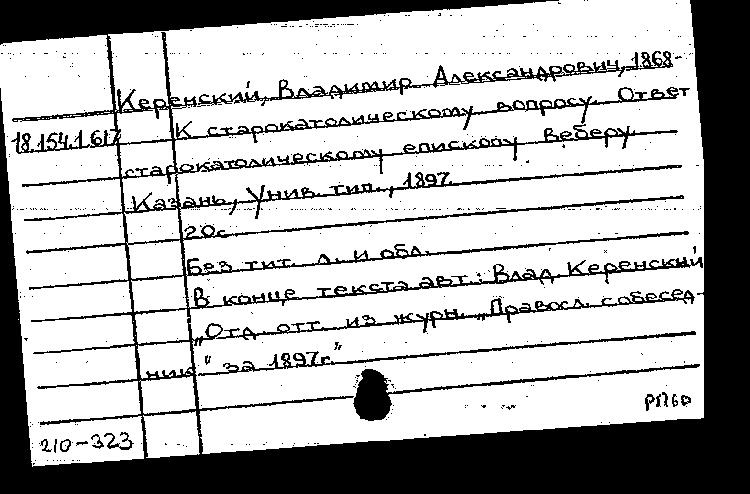 Керенский, Владимир Александрович, 1868-
18.154.1.617 К старокатолическому вопросу. Ответ
старокатолическому епископу Веберу.
Казань, Унив. тип., 1897.
20с.
Без тит. л. и обл.
В конце текста авт.: Влад. Керенский
„Отд. отт. из журн. „Правосл. собесед-
ник“ за 1897г.“
210-323